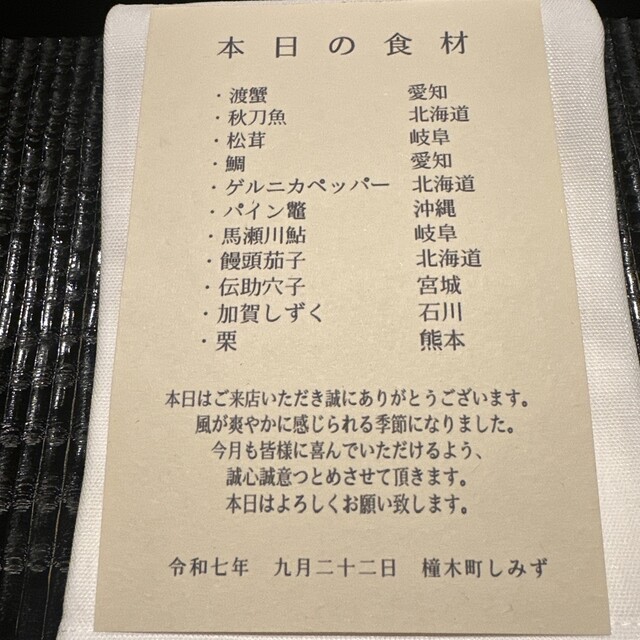 本日の食材
・渡蟹 愛知
・秋刀魚 北海道
・松茸 岐阜
・鯛 愛知
・ゲルニカペッパー 北海道
・パイン鼈 沖縄
・馬瀬川鮎 岐阜
・饅頭茄子 北海道
・伝助穴子 宮城
・加賀しずく 石川
・栗 熊本
本日はご来店いただき誠にありがとうございます。
風が爽やかに感じられる季節になりました。
今月も皆様に喜んでいただけるよう、
誠心誠意つとめさせて頂きます。
本日はよろしくお願い致します。
令和七年 九月二十二日 橦木町しみず